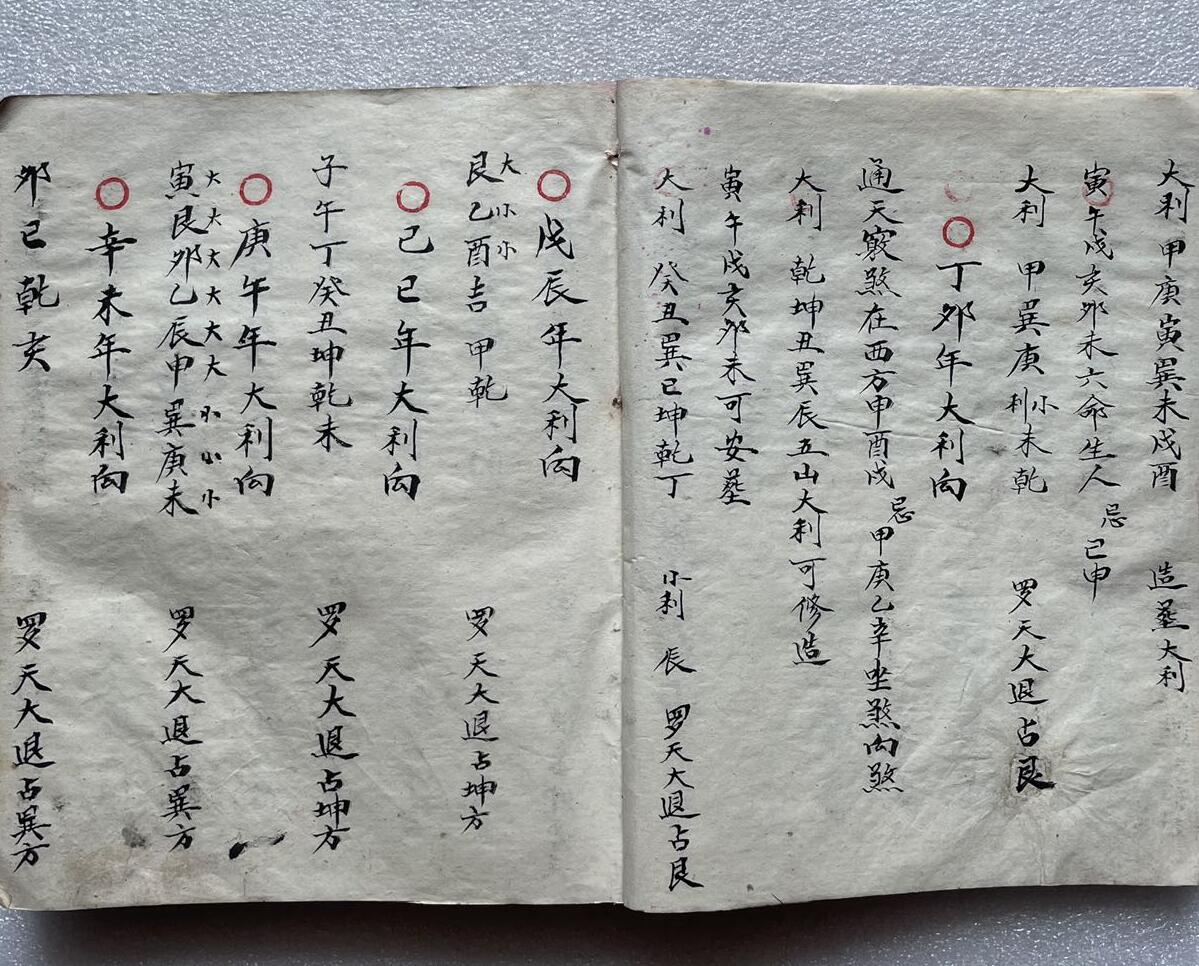 大利 甲庚寅巽未戌酉 造葬大利
寅午戌亥卯未六命生人 忌巳申
大利 甲巽庚 小利未乾 罗天大退占艮
丁卯年大利向
通天窍煞在西方申酉戌 忌甲庚乙辛坐煞向煞
大利 乾坤丑巽辰五山大利可修造
寅午戌亥卯未可安葬
大利 癸丑巽巳坤乾丁 小利 辰 罗天大退占艮
戊辰年大利向
大小小
艮乙酉吉 甲乾 罗天大退占坤方
己巳年大利向
子午丁癸丑坤乾未 罗天大退占坤方
庚午年大利向
大大大大大大小小小
寅艮卯乙辰申巽庚未 罗天大退占巽方
辛未年大利向
卯巳乾亥 罗天大退占巽方